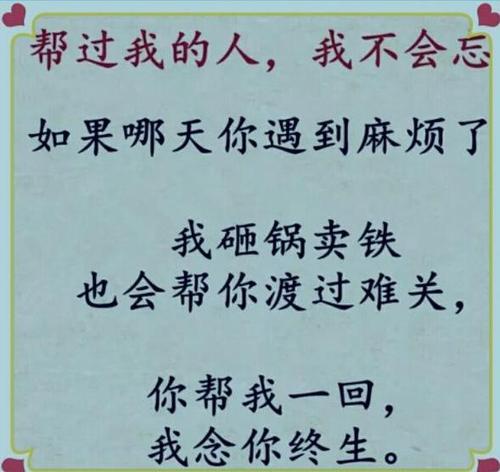 帮过我的人，我不会忘
如果哪天你遇到麻烦了
我砸锅卖铁
也会帮你渡过难关，
你帮我一回，
我念你终生。